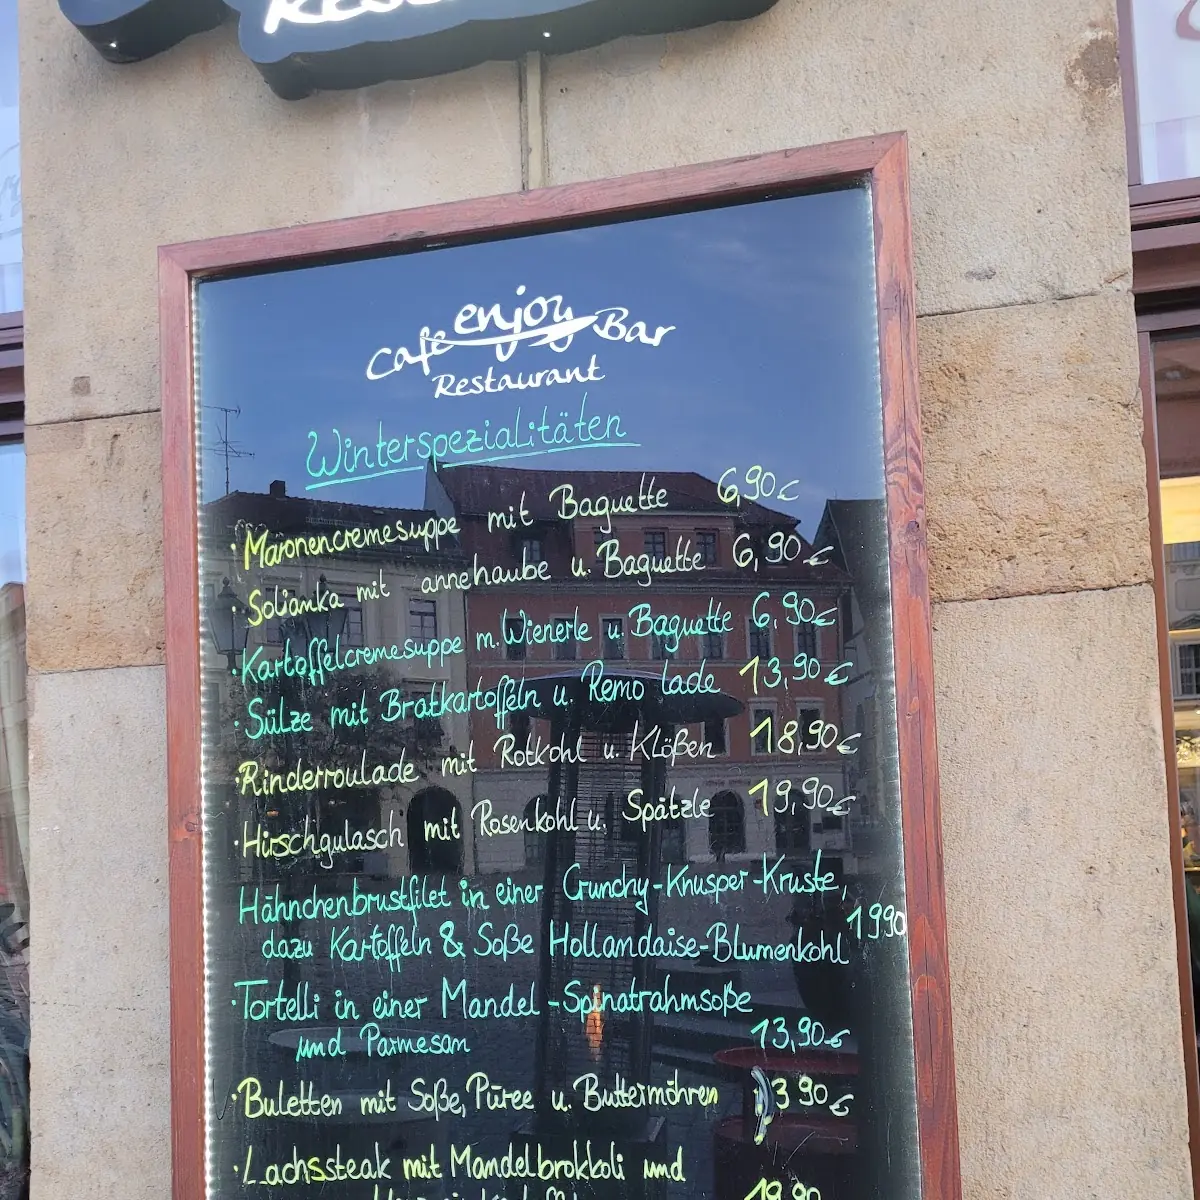 Cafe enjoy Bar
Restaurant
Winterspezialitäten
· Maronencremesuppe mit Baguette 6,90€
· Solianka mit annehaube u. Baguette 6,90€
· Kartoffelcremesuppe m. Wienerle u. Baguette 6,90€
· Sülze mit Bratkartoffeln u. Remo lade 13,90€
· Rinderroulade mit Rotkohl u. Klößen 18,90€
· Hirschgulasch mit Rosenkohl u. Spätzle 19,90€
Hähnchenbrustfilet in einer Crunchy-Knusper-Kruste,
dazu Kartoffeln & Soße Hollandaise-Blumenkohl 1990
· Tortelli in einer Mandel-Spinatrahmsoße
und Parmesan 13,90€
· Buletten mit Soße, Püree u. Buttermöhren 13 90€
· Lachssteak mit Mandelbrokkoli und
19,90